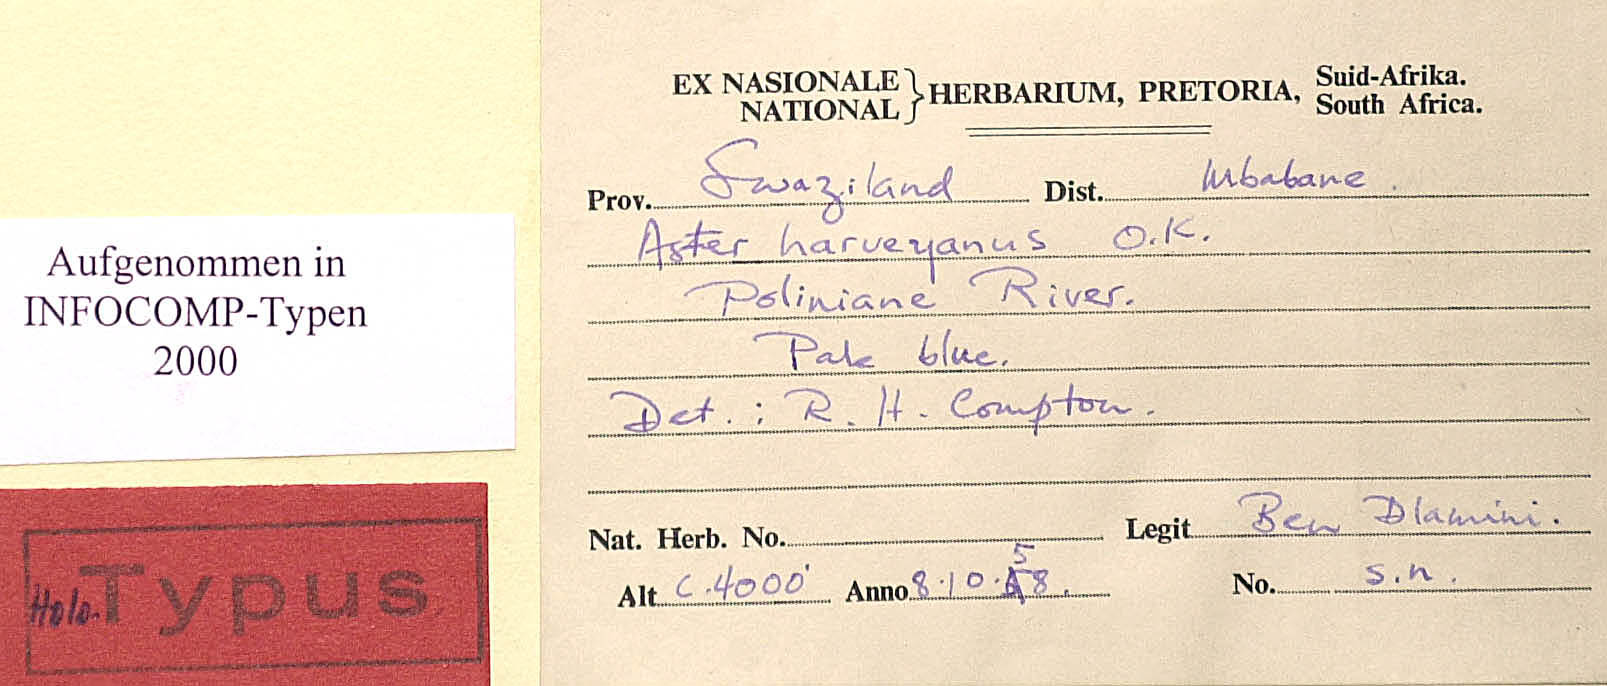 Aufgenommen in
INFOCOMP-Typen
2000
Holo-Typus
EX NASIONALE
NATIONAL
HERBARIUM, PRETORIA,
Suid-Afrika.
South Africa.
Prov. Swaziland Dist. Mbabane.
Aster harveyanus O.K.
Poliniane River.
Pale blue.
Det.: R. H. Compton.
Nat. Herb. No. Legit Ben Dlamini.
Alt C.4000' Anno 8.10.58. No. s.n.